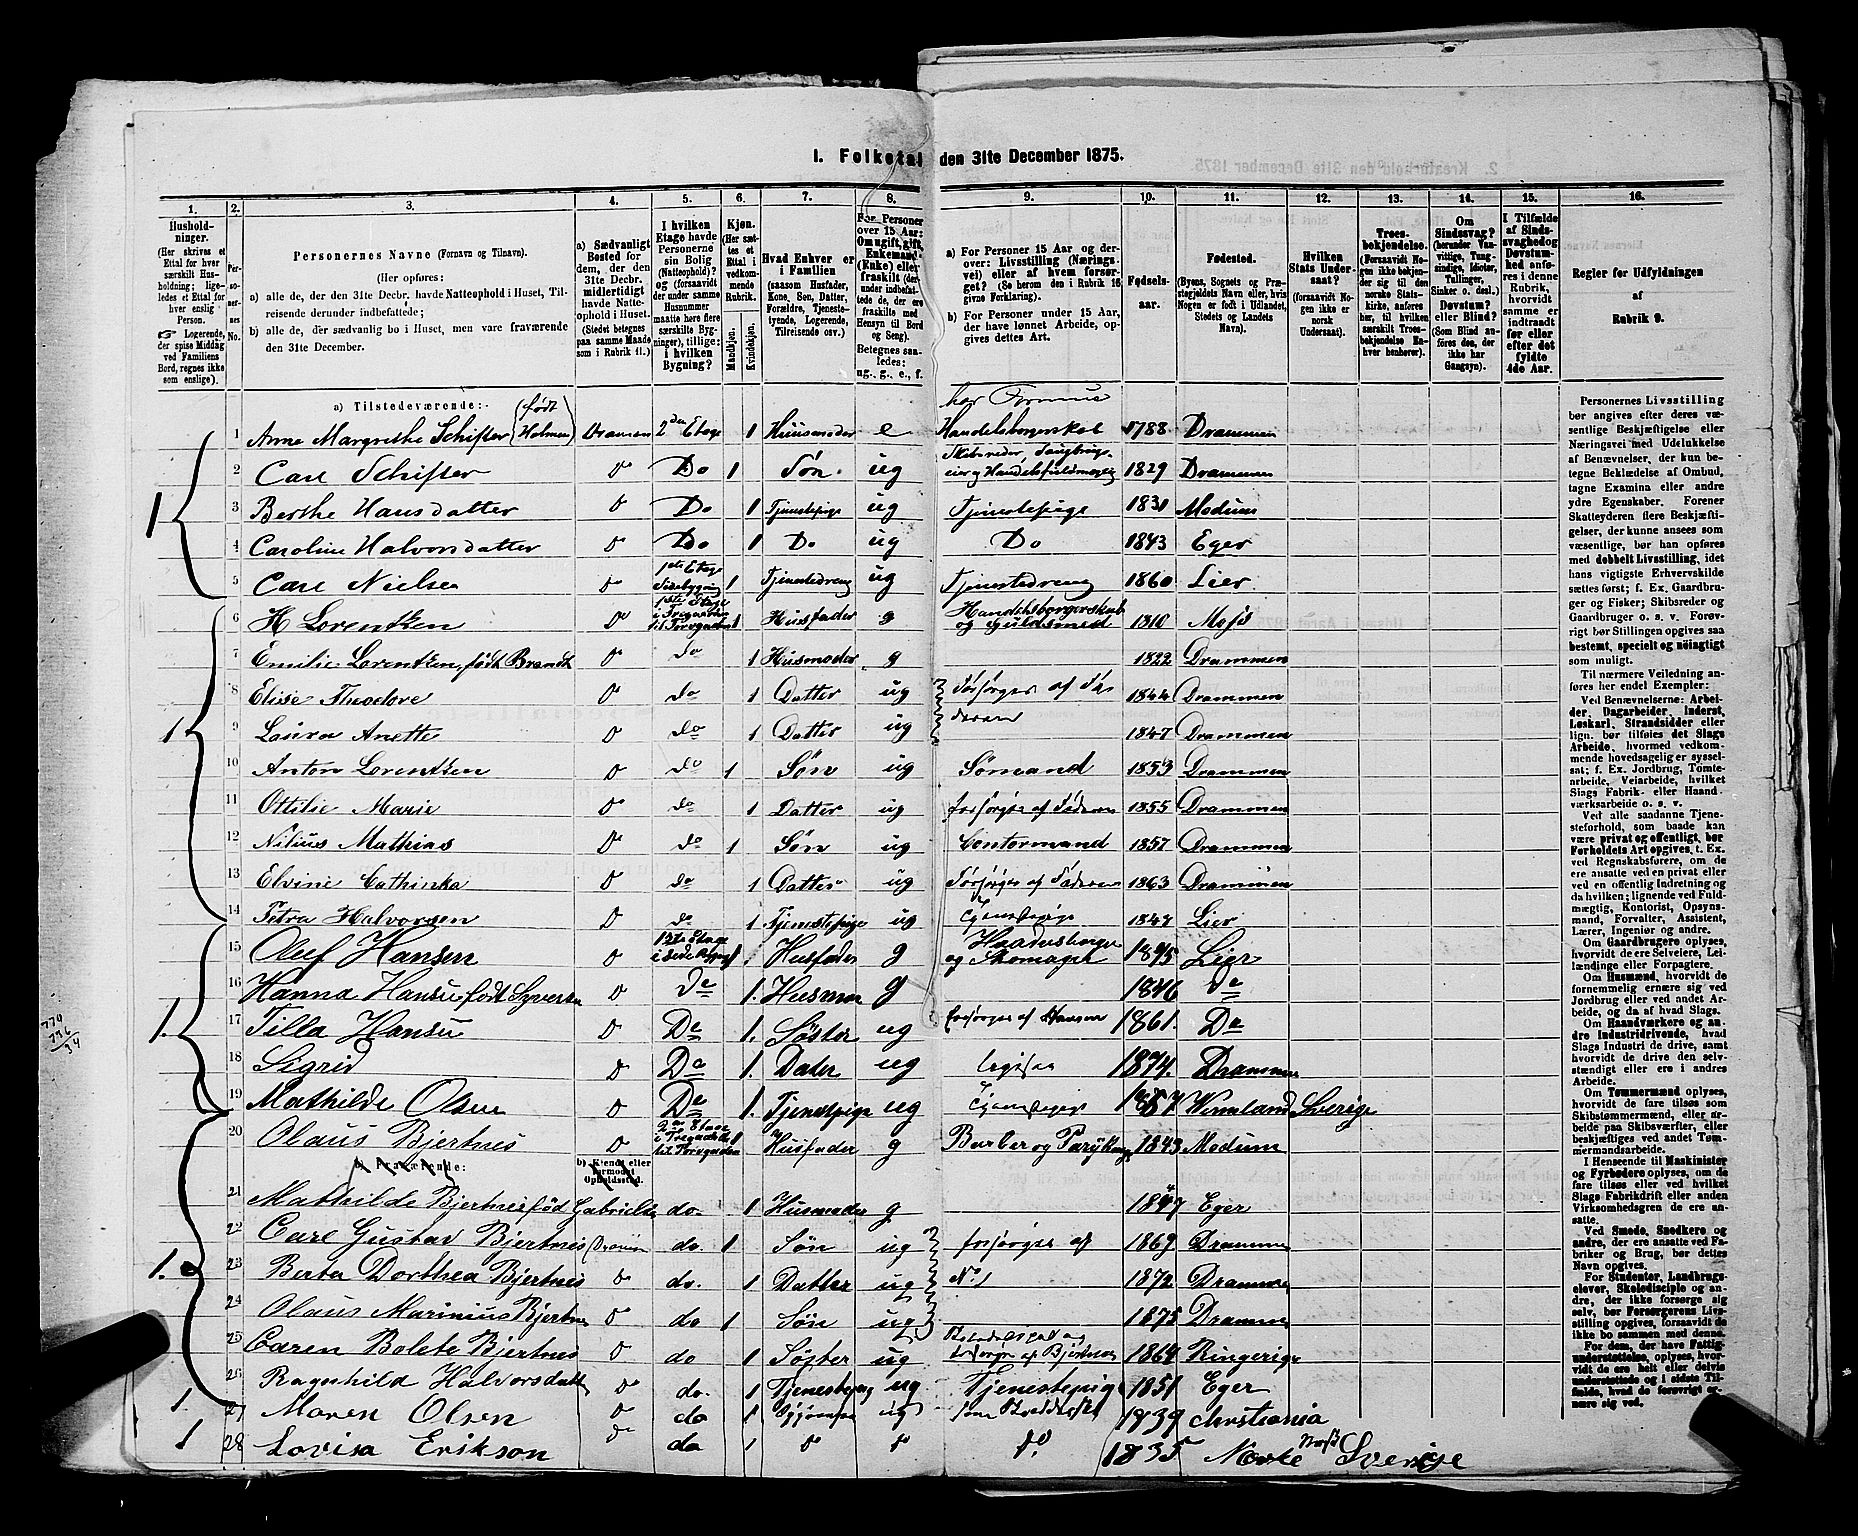 1. Folketal den 31te December 1875.
1. 2. 3. 4. 5. 6. 7. 8. 9. 10. 11. 12. 13. 14. 15. 16.
Husholdninger. (Her skrives et Ettal for hver særskilt Husholdning; ligeledes et Ettal for hver enslig Person. ☞ Logerende, der spise Middag ved Familiens Bord, regnes ikke som enslige).
Personernes No.
Personernes Navne (Fornavn og Tilnavn).
(Her opføres:
a) alle de, der den 31te Decbr. havde Natteophold i Huset, Tilreisende derunder indbefattede;
b) alle de, der sædvanlig bo i Huset, men vare fraværende den 31te December.
a) Sædvanligt Bosted for dem, der den 31te Decbr. midlertidigt havde Natteophold i Huset. (Stedet betegnes paa samme Maade som i Rubrik 11.)
I hvilken Etage havde Personerne sin Bolig (Natteophold)? og (forsaavidt der under samme Husnummer maatte høre flere særskilte Bygninger), tillige: i hvilken Bygning?
Kjøn. (Her sættes et Ettal i vedkommende Rubrik. Mandkjøn. Kvindekjøn.
Hvad Enhver er i Familien (saasom Husfader, Kone, Søn, Datter, Forældre, Tjenestetyende, Logerende, Tilreisende osv.)
For Personer over 15 Aar: Om ugift, gift, Enkemand (Enke) eller fraskilt (derunder indbefattede de, der ere fraskilte med Hensyn til Bord og Seng). Betegnes saaledes: ug., g., e., f.
a) For Personer 15 Aar og derover: Livsstilling (Næringsvei) eller af hvem forsørget? (Se herom den i Rubrik 16 givne Forklaring).
b) For Personer under 15 Aar, der have lønnet Arbeide, opgives dettes Art.
Fødselsaar.
Fødested. (Byens, Sognets og Præstegjeldets Navn eller, hvis Nogen er født i Udlandet, Stedets og Landets Navn).
Hvilken Stats Undersaat? (forsaavidt Nogen ikke er norsk Undersaat).
Troesbekjendelse. (Forsaavidt Nogen ikke bekjender sig til den norske Statskirke, anføres her, til hvilken særskilt Troesbekjendelse Enhver henhører).
Om Sindssvag? (herunder Vanvittige, Tungsindige, Idioter, Tullinger, Sinker o. desl.) Døvstum? eller Blind? (Som Blind anføres den, der ikke har Gangsyn).
I Tilfælde af Sindssvaghed og Døvstumhed anføres i denne Rubrik, hvorvidt samme er indtraadt før eller efter det fyldte 4de Aar.
Regler for Udfyldningen af Rubrik 9.
a) Tilstedeværende:
1 Anne Margrethe Schifter (født Holmen) Dramen 2den Etage 1 Huusmoder e har Formue Handelsborgerskab 1788 Drammen
2 Carl Schifter Do Do 1 Søn ug Skibsreder 1829 Drammen
3 Berthe Hansdatter Do Do 1 Tjenestepige ug Tjenestepige 1831 Modum
4 Caroline Halvorsdatter Do Do 1 Do ug Do 1843 Eger
5 Carl Nielsen Do 1ste Etage Sidebygning 1 Tjenestedreng ug Tjenestedreng 1860 Lier
6 H Lorentzen Do 1ste Etage 1 Husfader g Handelsborgerskab og Guldsmed 1810 Moss
7 Emilie Lorentzen, født Brandt Do do 1 Husmoder g 1822 Drammen
8 Elise Theodore Do do 1 Datter ug Forsørges af Faderen 1844 Drammen
9 Laura Anette Do do 1 Datter ug 1847 Drammen
10 Anton Lorentzen Do do 1 Søn ug Sømand 1853 Drammen
11 Ottilie Marie Do do 1 Datter ug forsørges af Faderen 1855 Drammen
12 Nilius Mathias Do do 1 Søn ug Contormand 1857 Drammen
13 Elvine Cathinka Do do 1 Datter ug Forsørges af Faderen 1863 Drammen
14 Petra Halvorsen Do do 1 Tjenestepige ug Tjenestepige 1847 Lier
15 Oluf Hansen Do 1ste Etage i Side Bygning 1 Husfader g og Skomager 1845 Lier
16 Hanna Hansen, født Syversen Do Do 1. Husmor g 1846 Do
17 Tilla Hansen Do Do 1. Søster ug forsørges af Hansen 1861. Do
18 Sigrid Do Do 1. Dater ug 1874. Drammen
19 Mathilde Olsen Do Do 1. Tjenestpige ug Tjenestpige 1857 Vermland Sverige
20 Olaus Bjertnes Do 2den Etage 1 Husfader g Barber og Parykmager 1843 Modum
b) Fraværende:
b) Kjendt eller formodet Opholdssted.
21 Mathilde Bjertnes fød Gabrielsen do 1 Husmoder g 1847 Eger
22 Carl Gustav Bjertnes Dramen do. 1 Søn ug forsørges af 1869 Drammen
23 Berta Dorthea Bjertnes Do do. 1 Datter ug No 1 1872 Drammen
24 Olaus Marinius Bjertnes Do do 1 Søn ug 1875 Drammen
25 Caren Bolete Bjertnes Do do 1 Søster ug forsørges af Bjertnes 1864 Ringerige
26 Ragnhild Halvorsdatter Do do. 1 Tjenestepig ug Tjenestepige 1851 Eger
1 27 Maren Olsen Do do 1 ug 1839 Christiania
1 28 Lovisa Erikson Do do 1 Do 1835 Sverige
Personernes Livsstilling bør angives efter deres væsentlige Beskjæftigelse eller Næringsvei med Udelukkelse af Benævnelser, der kun betegne Beklædelse af Ombud, tagne Examina eller andre ydre Egenskaber. Forener Skatteyderen flere Beskjæftigelser, der kunne ansees som væsentlige, bør han opføres med dobbelt Livsstilling, idet hans vigtigste Erhvervskilde sættes først; f. Ex. Gaardbruger og Fisker; Skibsreder og Gaardbruger o. s. v. Forøvrigt bør Stillingen opgives saa bestemt, specielt og nøiagtigt som muligt.
Til nærmere Veiledning anføres her endel Exempler:
Ved Benævnelserne: Arbeider, Dagarbeider, Inderst, Løskarl, Strandsidder eller lign. bør tilføies det Slags Arbeide, hvormed vedkommende hovedsagelig er sysselsat; f. Ex. Jordbrug, Tømtearbeide, Veiarbeide, hvilket Slags Fabrik- eller Haandværksarbeide o. s. v.
Ved alle saadanne Tjenesteforhold, som baade kan være privat og offentligt, bør Forholdets Art opgives, f. Ex. ved Regnskabsførere, om de ere ansatte ved en privat eller ved en offentlig Indretning og da hvilken; lignende ved Fuldmægtig, Kontorist, Opsynsmand, Forvalter, Assistent, Lærer, Ingeniør og andre.
Om Gaardbrugere oplyses, hvorvidt de ere Selveiere, Leilændinge eller Forpagtere.
Om Husmænd, hvorvidt de fornemmelig ernære sig ved Jordbrug eller ved andet Arbeide, og da af hvad Slags.
Om Haandværkere og andre Industridrivende, hvad Slags Industri de drive, samt hvorvidt de drive den selvstændigt eller ere i andres Arbeide.
Om Tømmermænd oplyses, hvorvidt de fare tilsøs som Skibstømmermænd, eller arbeide paa Skibsværfter, eller beskjæftiges ved andet Tømmermandsarbeide.
I Henseende til Maskinister og Fyrbødere oplyses, om de fare tilsøs eller ved hvilket Slags Fabrikdrift eller anden Virksomhedsgren de ere ansatte.
Ved Smede, Snedkere og andre, der ere ansatte ved Fabriker og Brug, bør dettes Navn opgives.
For Studenter, Landbrugselever, Skoledisciple og andre, der ikke forsørge sig selv, bør Forsørgerens Livsstilling opgives, forsaavidt de ikke bo sammen med denne.
For dem, der have Fattigunderstøttelse, oplyses, hvorvidt de ere helt eller delvis understøttede og i sidste Tilfælde, hvad de forøvrigt ernære sig ved.